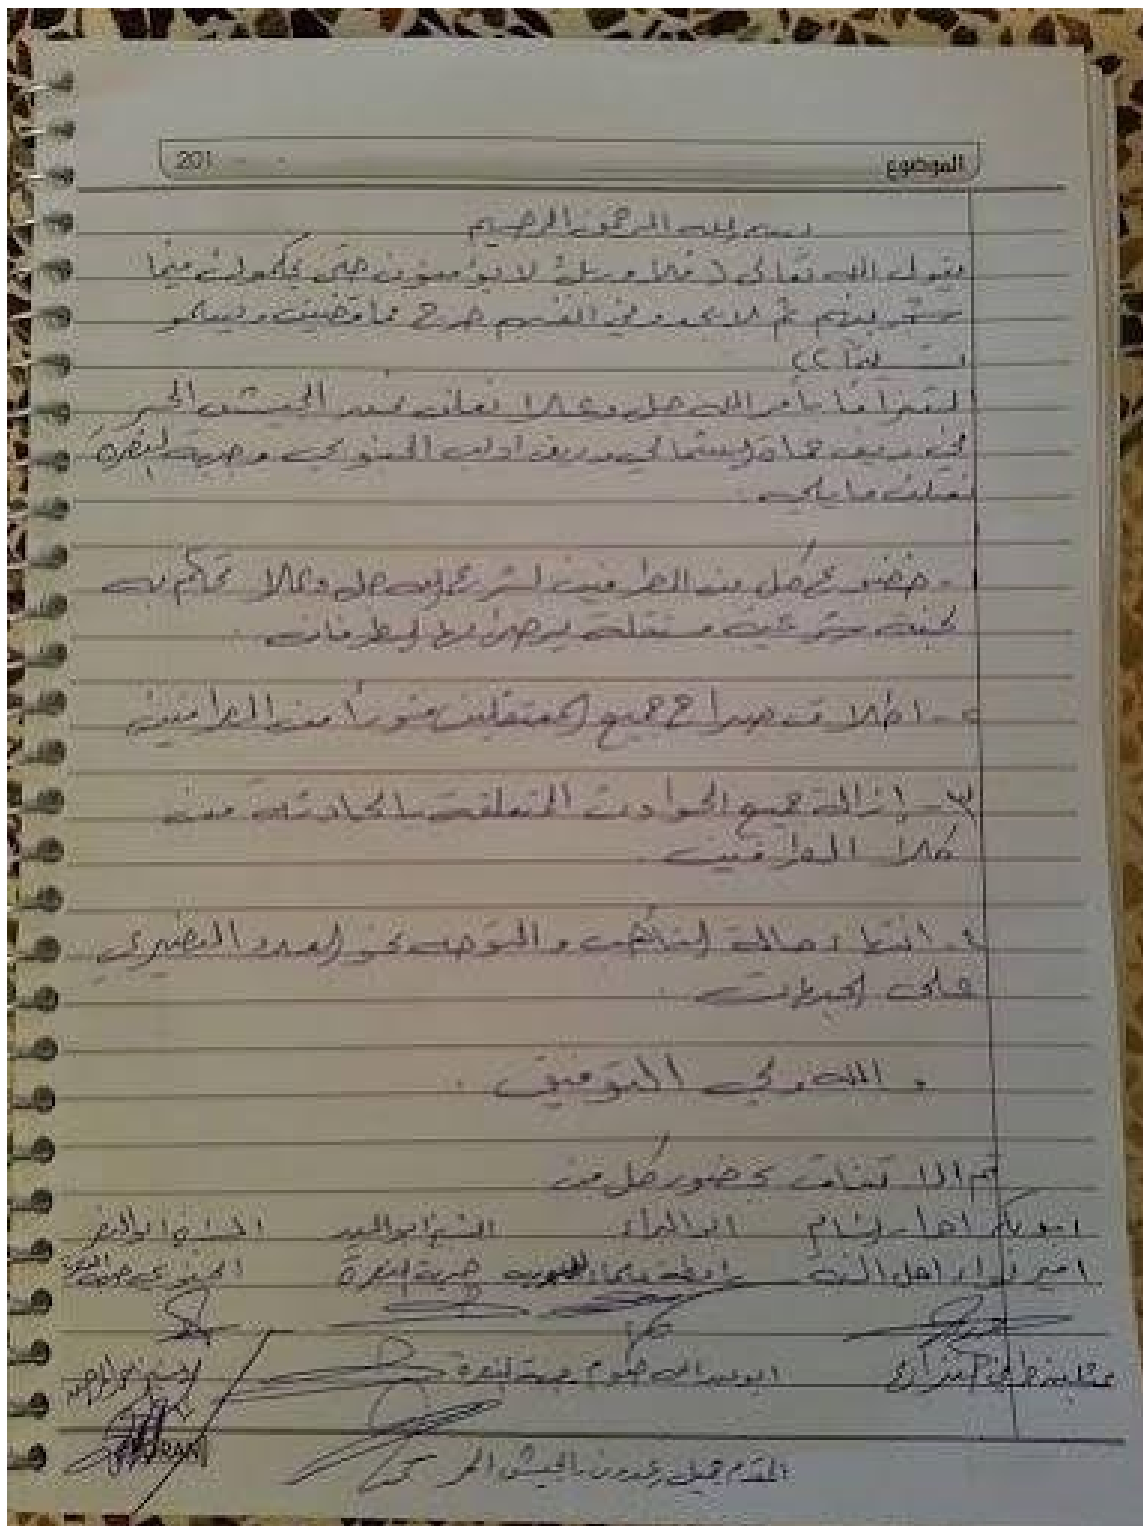 الموضوع 201
بسم الله الرحمن الرحيم
يقول الله تعالى (فلا وربك لا يؤمنون حتى يحكموك فيما
شجر بينهم ثم لا يجدو في انفسهم حرج مما قضيت ويسلمو
تسليمًا))
التزامًا بأمر الله جل وعلا نعلن نحن الجيش الحر
في ريف حماة الشمالي وريف ادلب الجنوبي وجبهة النصرة
نعلن ما يلي:
1- خضوع كل من الطرفين لشرع الله جل وعلا تحكم به
لجنة شرعية مستقلة يرضى بها الطرفان.
2- اطلاق صراح جميع المعتقلين فوراً من الطرفين
3- إزالة جميع الحوادث المتعلقة بالحادثة من
كلا الطرفين.
4- انهاء حالة التأهب والتوجه نحو العدو النصيري
على الجبهات.
والله ولي التوفيق.
تم الاتفاق بحضور كل من
ابو البراء الشيخ ابو
امير لواء اهل السنة رابطة علماء جبهة النصرة
ابو عبد الله جبهة النصرة
المقدم جميل رعدون الجيش الحر